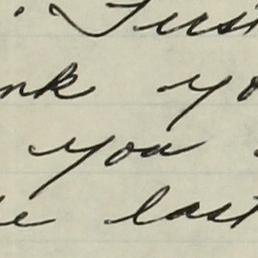 . First
nk yo
you
e last